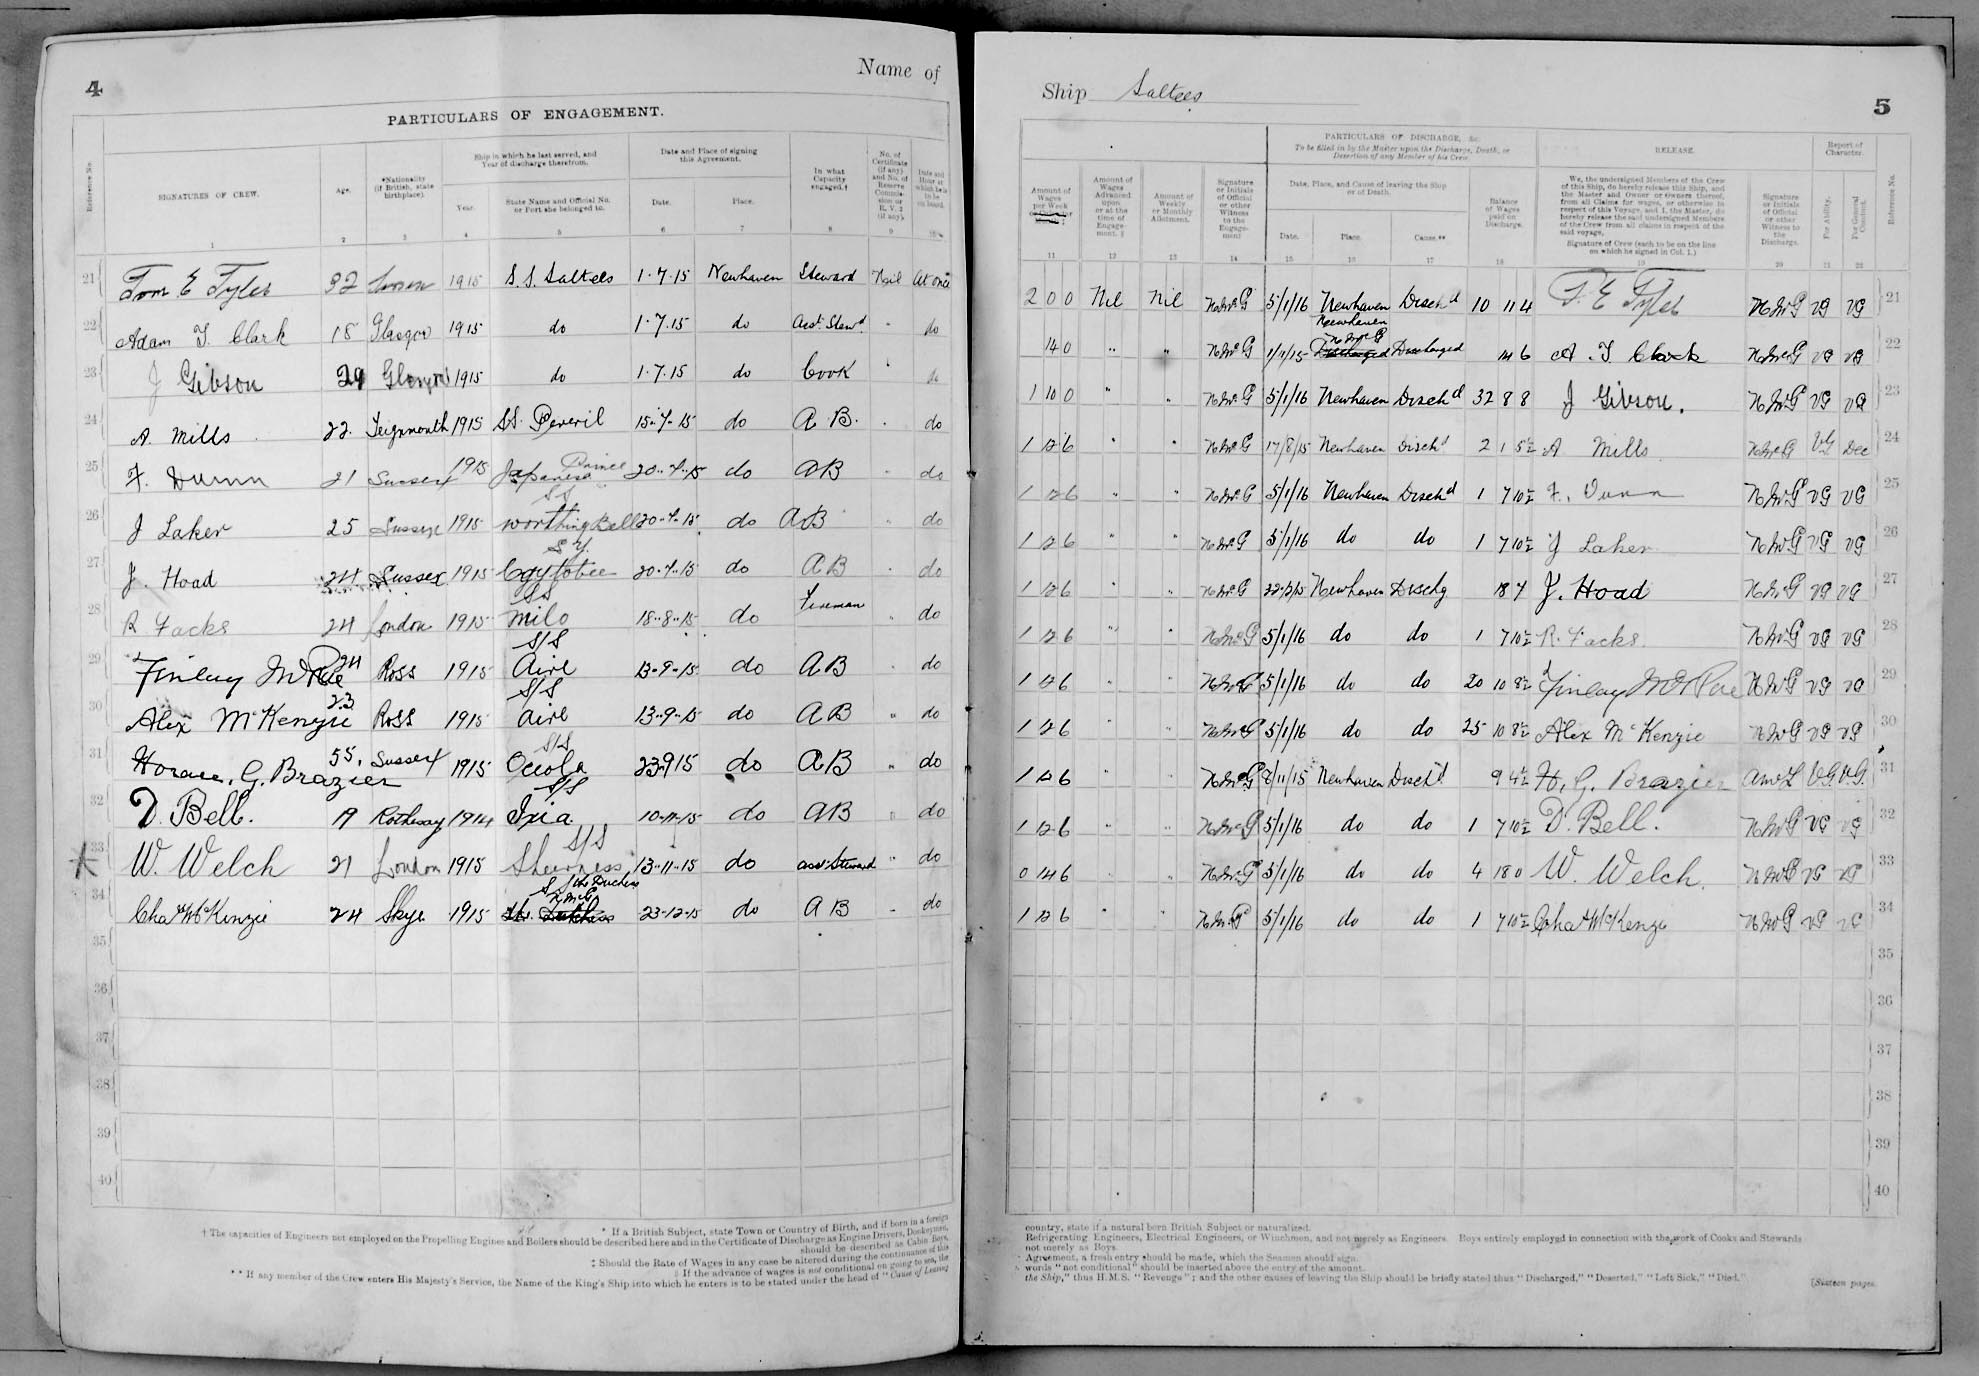 4
Name of
PARTICULARS OF ENGAGEMENT.
Reference No.
SIGNATURES OF CREW.
Age.
*Nationality (if British, state birthplace).
Ship in which he last served, and Year of discharge therefrom.
Year.
State Name and Official No. or Port she belonged to.
Date and Place of signing this Agreement.
Date.
Place.
In what Capacity engaged.†
No. of Certificate (if any) and No. of Reserve Commission or R.V.2 (if any).
Date and Hour at which he is to be on board.
1 2 3 4 5 6 7 8 9 10
21 Tom E Tyler 32 1915 S.S. Saltees 1.7.15 Newhaven Steward Nil At once
22 Adam T. Clark 18 Glasgow 1915 do 1.7.15 do Asst. Stewd do
23 J Gibson 29 1915 do 1.7.15 do Cook do
24 A Mills 22 Teignmouth 1915 SS. Peveril 15.7.15 do A B. do
25 F. Dunn 21 Sussex 1915 Japanese Prince 20.7.15 do AB do
26 J Laker 25 Sussex 1915 SS Worthing Bell 20.7.15 do AB do
27 J. Hoad 24 Sussex 1915 S.Y. 20.7.15 do AB do
28 R Facks 24 London 1915 SS Milo 18.8.15 do Fireman do
29 Finlay McRae 24 Ross 1915 S/S Aire 13-9-15 do AB do
30 Alex McKenzie 23 Ross 1915 S/S Aire 13-9-15 do AB do
31 Horace. G. Brazier 55. Sussex 1915 S/S Oceola 23915 do AB do
32 D. Bell. 19 Rothesay 1914 S/S Ixia 10-11-15 do AB do
33 W. Welch 21 London 1915 S/S Sheerness 13-11-15 do asst Steward do
34 Chas McKenzie 24 Skye 1915 Duchess 23-12-15 do AB do
35
36
37
38
39
40
* If a British Subject, state Town or Country of Birth, and if born in a foreign
† The capacities of Engineers not employed on the Propelling Engines and Boilers should be described here and in the Certificate of Discharge as Engine Drivers, Donkeymen,
should be described as Cabin Boys,
‡ Should the Rate of Wages in any case be altered during the continuance of this
§ If the advance of wages is not conditional on going to sea, the
** If any member of the Crew enters His Majesty's Service, the Name of the King's Ship into which he enters is to be stated under the head of "Cause of Leaving
Ship Saltees
5
PARTICULARS OF DISCHARGE, &c.
To be filled in by the Master upon the Discharge, Death, or Desertion of any Member of his Crew.
RELEASE.
Report of Character.
Amount of Wages per Week
Amount of Wages Advanced upon or at the time of Engagement. §
Amount of Weekly or Monthly Allotment.
Signature or Initials of Official or other Witness to the Engagement
Date, Place, and Cause of leaving the Ship or of Death.
Date.
Place.
Cause.**
Balance of Wages paid on Discharge.
We, the undersigned Members of the Crew of this Ship, do hereby release this Ship, and the Master and Owner or Owners thereof, from all Claims for wages, or otherwise in respect of this Voyage, and I, the Master, do hereby release the said undersigned Members of the Crew from all claims in respect of the said voyage.
Signature of Crew (each to be on the line on which he signed in Col. 1.)
Signature or Initials of Official or other Witness to the Discharge.
For Ability.
For General Conduct.
Reference No.
11 12 13 14 15 16 17 18 19 20 21 22
2 0 0 Nil Nil 5/1/16 Newhaven Dischd 10 11 4 T. E Tyler VG VG 21
14 0 " " Newhaven Discharged Discharged 14 6 A. T Clark VG VG 22
1 10 0 " " 5/1/16 Newhaven Dischd 32 8 8 J Gibson. VG VG 23
1 12 6 " " 17/8/15 Newhaven Dischd 2 1 5½ A Mills VG Dec 24
1 12 6 " " 5/1/16 Newhaven Dischd 1 7 10½ F. Dunn VG VG 25
1 12 6 " " 5/1/16 do do 1 7 10½ J Laker VG VG 26
1 12 6 " " Newhaven Dischg 18 7 J. Hoad VG VG 27
1 12 6 " " 5/1/16 do do 1 7 10½ R. Facks. VG VG 28
1 12 6 5/1/16 do do 20 10 8½ Finlay McRae VG VG 29
1 12 6 5/1/16 do do 25 10 8½ Alex McKenzie VG VG 30
1 12 6 8/11/15 Newhaven Dischd 9 4½ H. G. Brazier V.G. V.G. 31
1 12 6 5/1/16 do do 1 7 10½ D. Bell. VG VG 32
0 14 6 5/1/16 do do 4 18 0 W. Welch. VG VG 33
1 12 6 5/1/16 do do 1 7 10½ Chas McKenzie VG VG 34
35
36
37
38
39
40
country, state if a natural born British Subject or naturalized.
Refrigerating Engineers, Electrical Engineers, or Winchmen, and not merely as Engineers. Boys entirely employed in connection with the work of Cooks and Stewards
not merely as Boys.
Agreement, a fresh entry should be made, which the Seamen should sign.
words "not conditional" should be inserted above the entry of the amount.
the Ship," thus H.M.S. "Revenge"; and the other causes of leaving the Ship should be briefly stated thus "Discharged," "Deserted," "Left Sick," "Died."
[Sixteen pages.